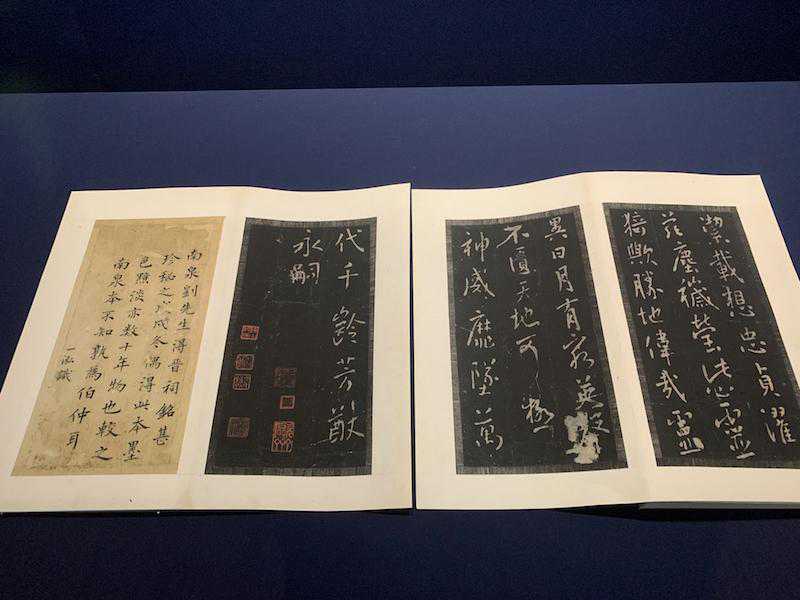 縈載想忠貞濯
茲塵穢瑩此心靈
猗歟勝地偉哉靈
異日月有窮英聲
不匱天地可極
神威靡墜萬
代千齡芳猷
永嗣
南泉劉先生得晉祠銘甚
珍秘之戊戌冬偶得此本墨
色黯淡亦數十年物也較之
南泉本不知孰為伯仲耳
一泓識